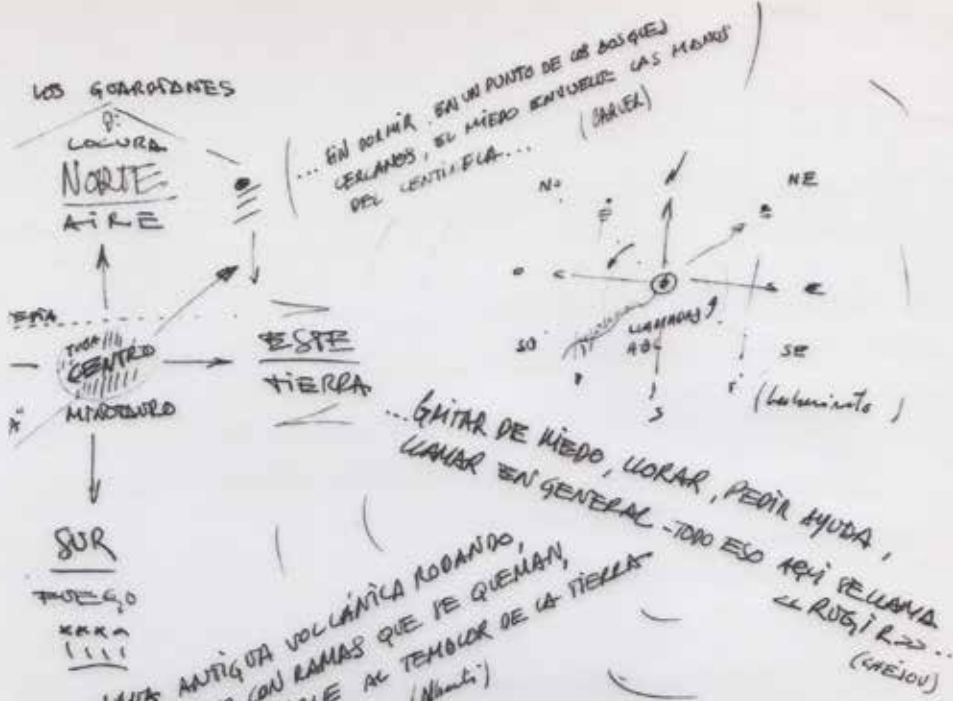 LOS GUARDIANES
LOCURA
NORTE
AIRE
CENTRO
MINOTAURO
ESTE
TIERRA
SUR
FUEGO
XXXX
... EN DORMIR. EN UN PUNTO DE LOS BOSQUES
CERCANOS, EL MIEDO ENVUELVE LAS MANOS
DEL CENTINELA...
NO
NE
O
E
SO
SE
S
LLAMADAS
...GRITAR DE MIEDO, LLORAR, PEDIR AYUDA,
LLAMAR EN GENERAL - TODO ESO AQUÍ SE LLAMA
<< RUGIR>>...
(CHEJOV)
ANTIGUA VOLCÁNICA RODANDO,
CON RAMAS QUE SE QUEMAN,
AL TEMBLOR DE LA TIERRA
(Alberti)